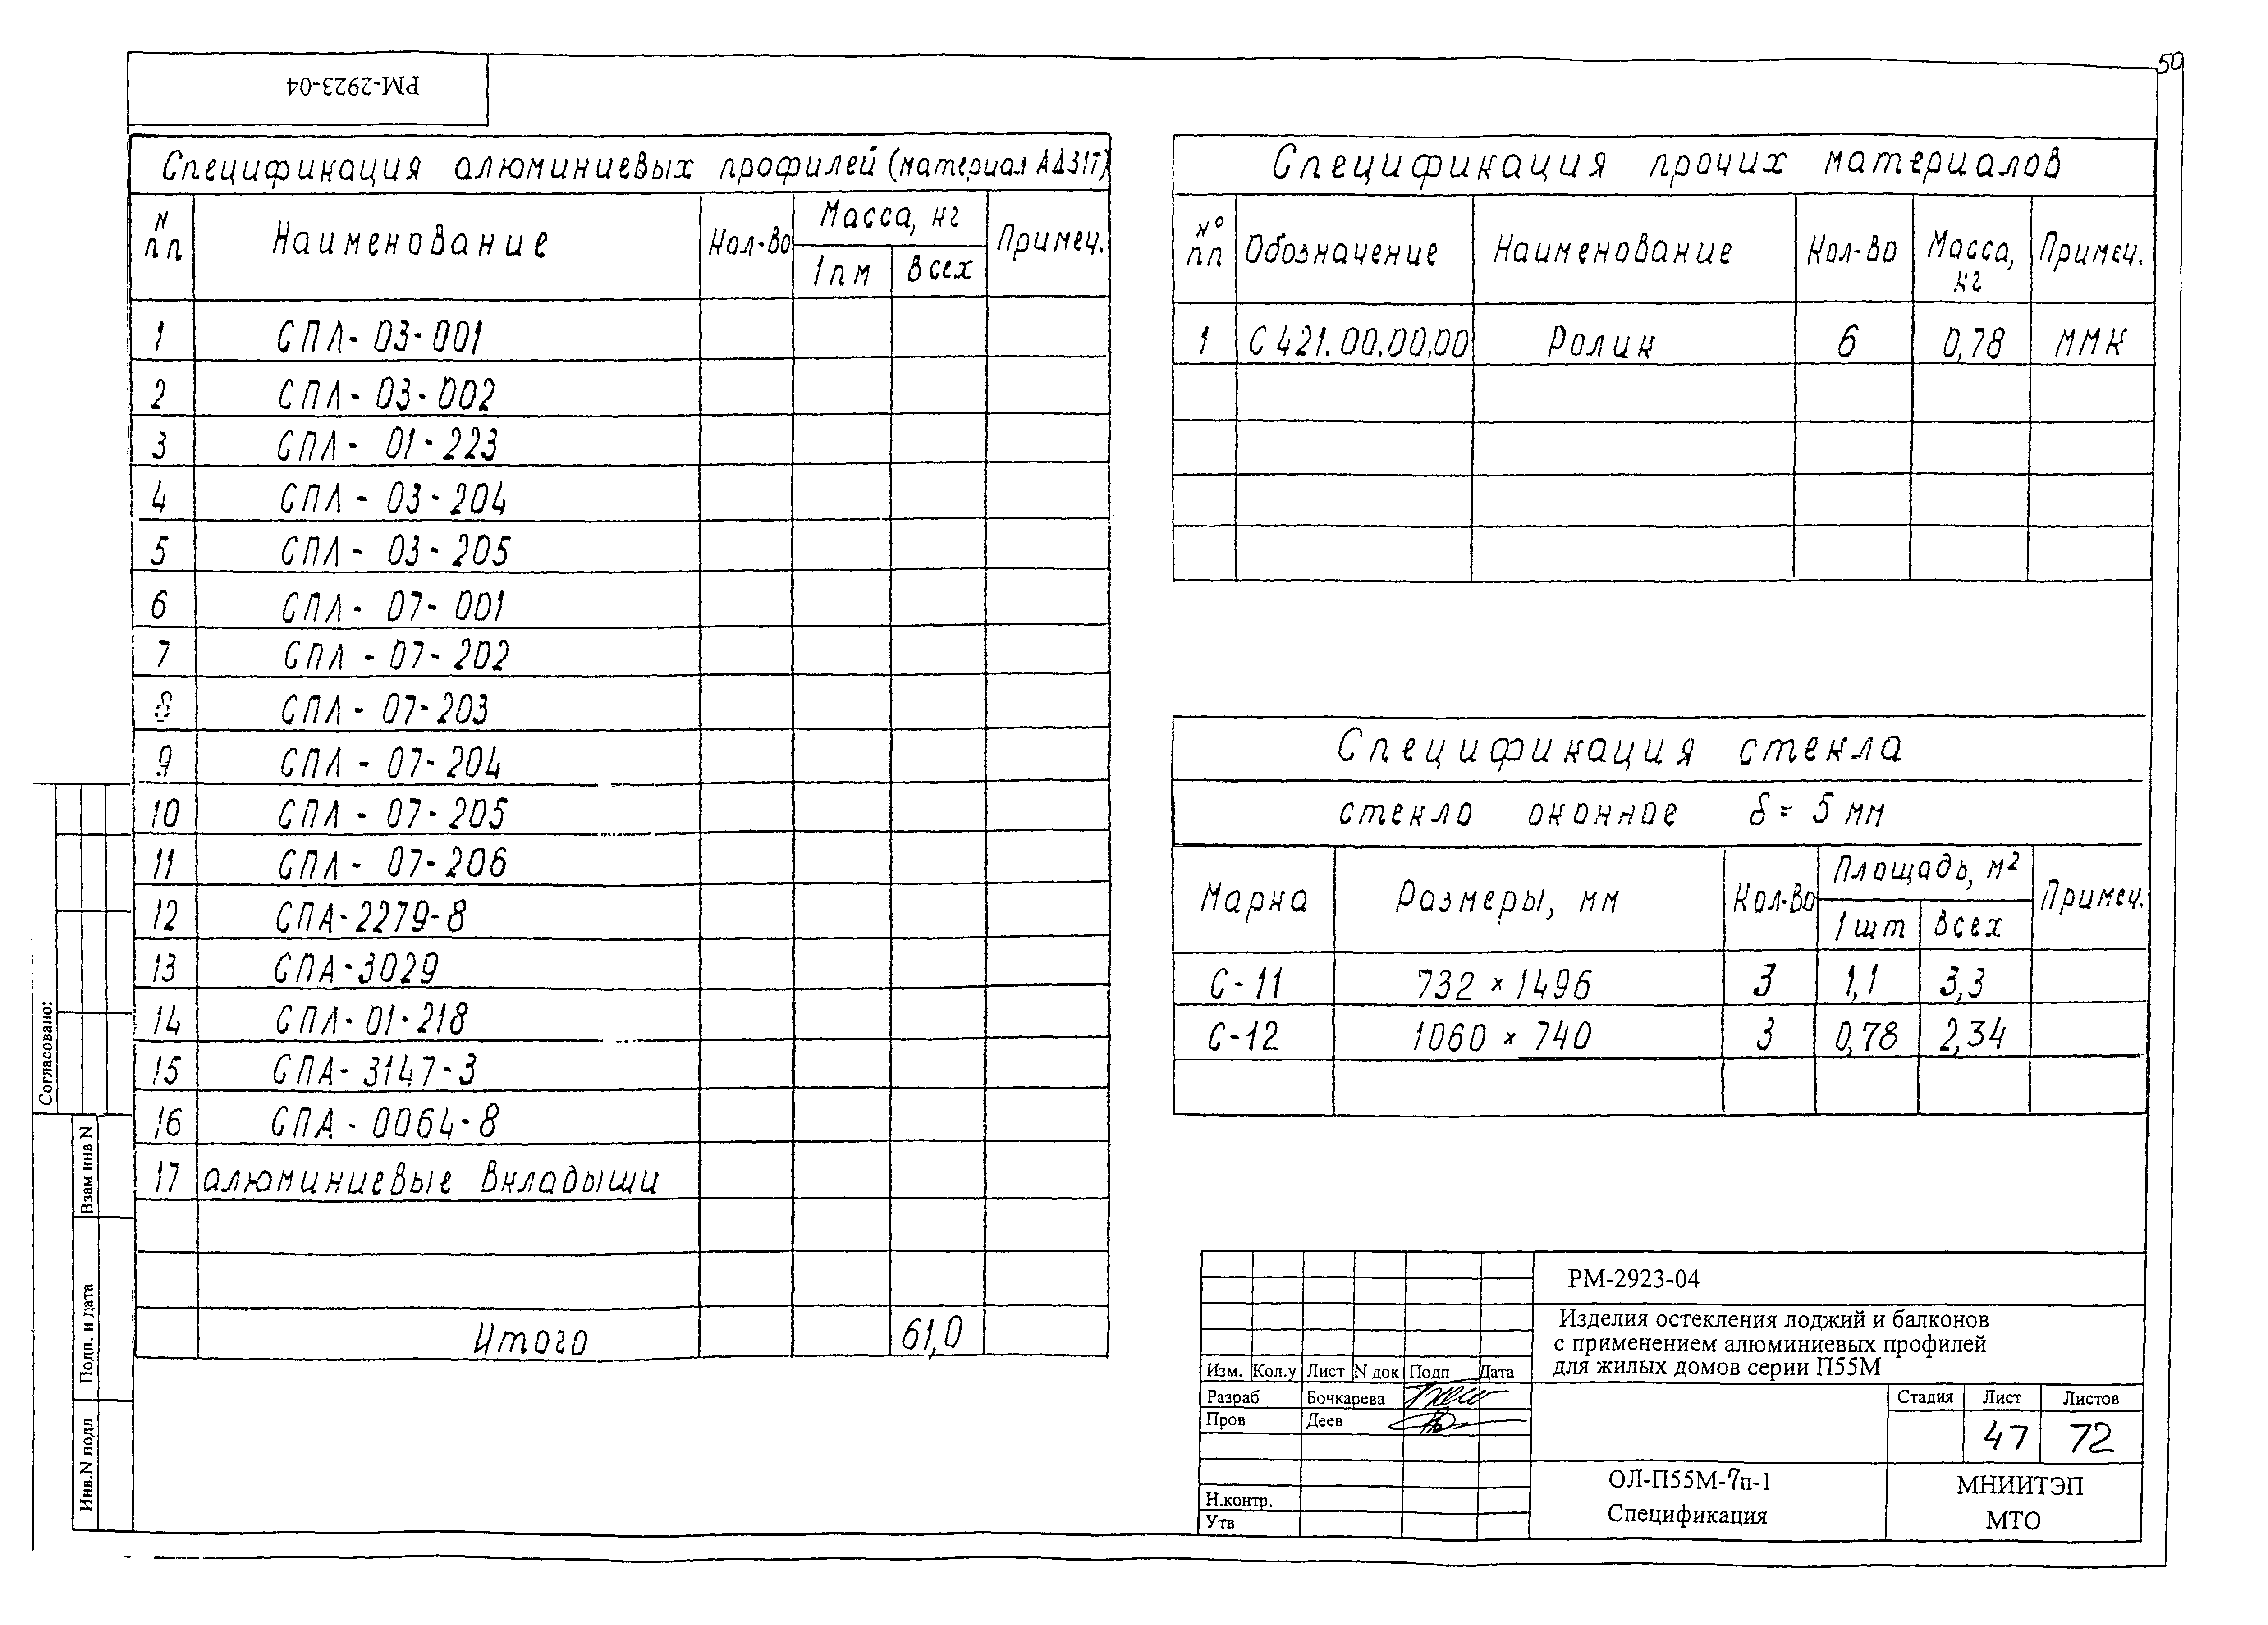 50
РМ-2923-04
Спецификация алюминиевых профилей (материал АД31Т)
N пп Наименование Кол-во Масса, кг Примеч.
1пм всех
1 СПЛ-03-001
2 СПЛ-03-002
3 СПЛ-01-223
4 СПЛ-03-204
5 СПЛ-03-205
6 СПЛ-07-001
7 СПЛ-07-202
8 СПЛ-07-203
9 СПЛ-07-204
10 СПЛ-07-205
11 СПЛ-07-206
12 СПА-2279-8
13 СПА-3029
14 СПЛ-01-218
15 СПА-3147-3
16 СПА-0064-8
17 алюминиевые вкладыши
Итого 61,0
Спецификация прочих материалов
№ пп Обозначение Наименование Кол-во Масса, кг Примеч.
1 С421.00.00.00 Ролик 6 0,78 ММК
Спецификация стекла
стекло оконное δ = 5 мм
Марка Размеры, мм Кол-во Площадь, м² Примеч.
1 шт всех
С-11 732 × 1496 3 1,1 3,3
С-12 1060 × 740 3 0,78 2,34
Согласовано:
Взам инв N
Подп. и дата
Инв.N подл
РМ-2923-04
Изделия остекления лоджий и балконов
с применением алюминиевых профилей
для жилых домов серии П55М
Изм. Кол.у Лист N док Подп Дата
Разраб Бочкарева
Пров Деев
Н.контр.
Утв
Стадия Лист Листов
47 72
ОЛ-П55М-7п-1
Спецификация
МНИИТЭП
МТО